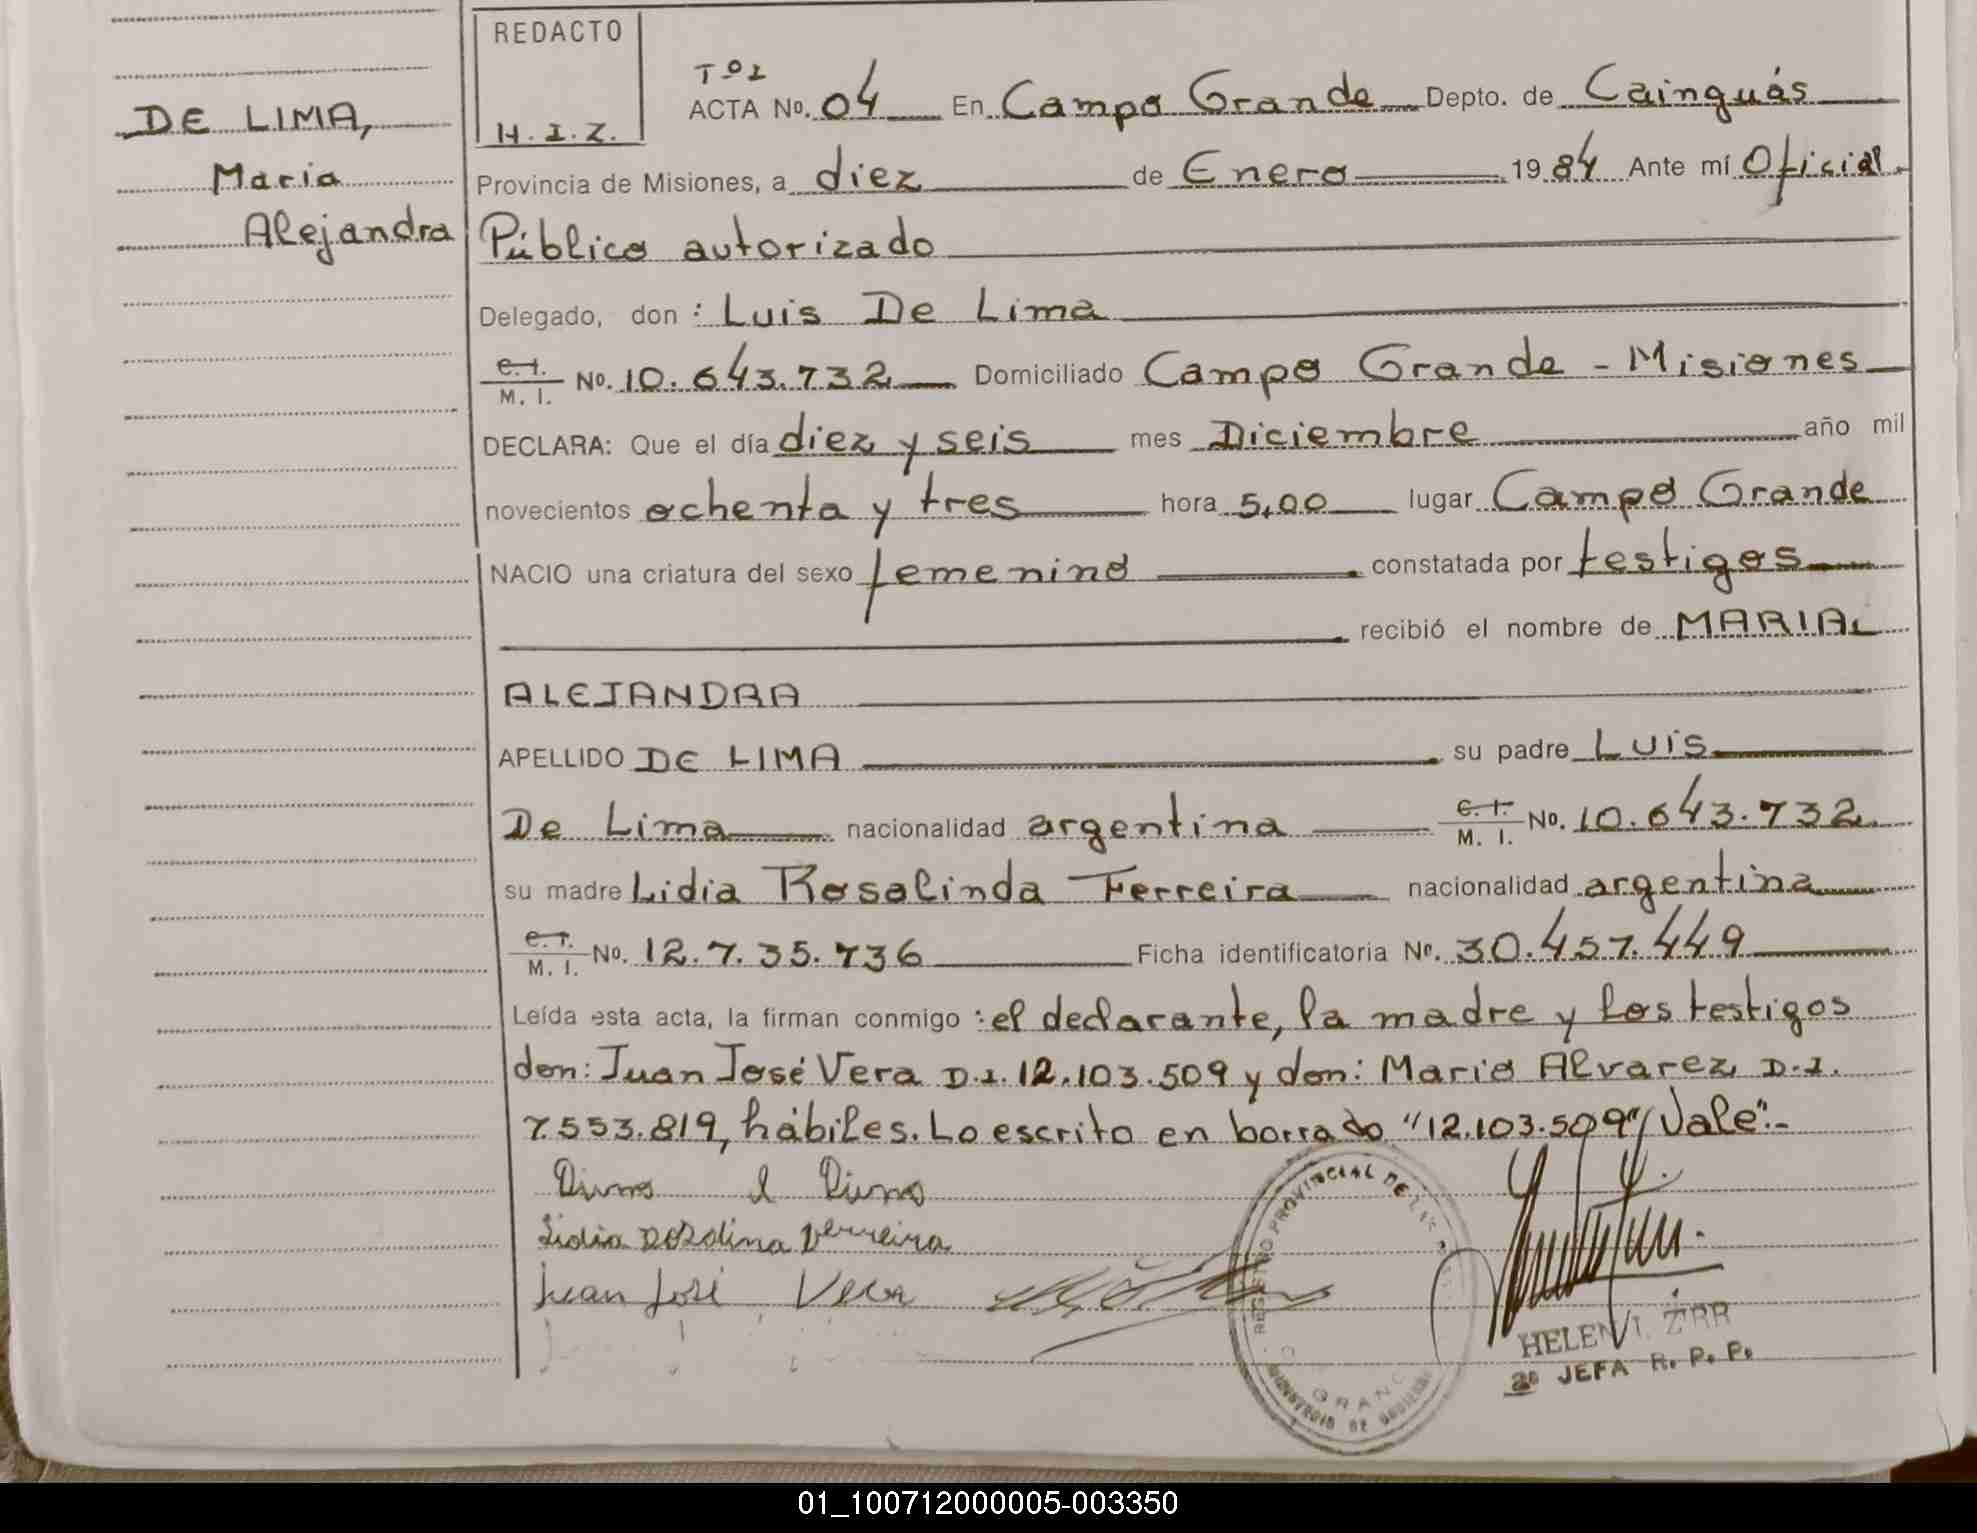 REDACTO
H. I. Z.
DE LIMA,
Maria
Alejandra
Tº 1
ACTA Nº. 04 En Campo Grande Depto. de Cainguás
Provincia de Misiones, a diez de Enero 1984 Ante mí Oficial
Público autorizado
Delegado, don: Luis De Lima
C. I. / M. I. Nº. 10.643.732 Domiciliado Campo Grande - Misiones
DECLARA: Que el día diez y seis mes Diciembre año mil
novecientos ochenta y tres hora 5,00 lugar Campo Grande
NACIO una criatura del sexo femenino constatada por testigos
recibió el nombre de MARIA
ALEJANDRA
APELLIDO DE LIMA su padre Luis
De Lima nacionalidad argentina C. I. / M. I. Nº. 10.643.732
su madre Lidia Rosalinda Ferreira nacionalidad argentina
C. I. / M. I. Nº. 12.7.35.736 Ficha identificatoria Nº. 30.457.449
Leída esta acta, la firman conmigo: el declarante, la madre y los testigos
don: Juan José Vera D.I. 12.103.509 y don: Mario Alvarez, D.I.
7.553.819, hábiles. Lo escrito en borrado "12.103.509"/Vale".-
Juan José Vera
REGISTRO PROVINCIAL DE
MINISTERIO DE GOBIERNO
HELEN I. ZIRR
2º JEFA R. P. P.
01_100712000005-003350